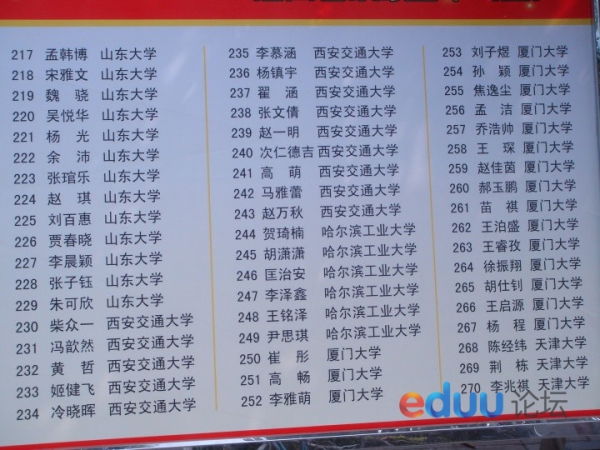 217 孟韩博 山东大学
218 宋雅文 山东大学
219 魏 骁 山东大学
220 吴悦华 山东大学
221 杨 光 山东大学
222 余 沛 山东大学
223 张琯乐 山东大学
224 赵 琪 山东大学
225 刘百惠 山东大学
226 贾春晓 山东大学
227 李晨颖 山东大学
228 张子钰 山东大学
229 朱可欣 山东大学
230 柴众一 西安交通大学
231 冯歆然 西安交通大学
232 黄 哲 西安交通大学
233 姬健飞 西安交通大学
234 冷晓晖 西安交通大学
235 李慕涵 西安交通大学
236 杨镇宇 西安交通大学
237 翟 涵 西安交通大学
238 张文倩 西安交通大学
239 赵一明 西安交通大学
240 次仁德吉 西安交通大学
241 高 萌 西安交通大学
242 马雅蕾 西安交通大学
243 赵万秋 西安交通大学
244 贺琦楠 哈尔滨工业大学
245 胡潇潇 哈尔滨工业大学
246 匡治安 哈尔滨工业大学
247 李泽鑫 哈尔滨工业大学
248 王铭泽 哈尔滨工业大学
249 尹思琪 哈尔滨工业大学
250 崔 彤 厦门大学
251 高 畅 厦门大学
252 李雅萌 厦门大学
253 刘子煜 厦门大学
254 孙 颖 厦门大学
255 焦逸尘 厦门大学
256 孟 洁 厦门大学
257 乔浩帅 厦门大学
258 王 琛 厦门大学
259 赵佳茵 厦门大学
260 郝玉鹏 厦门大学
261 苗 祺 厦门大学
262 王泊盛 厦门大学
263 王睿孜 厦门大学
264 徐振翔 厦门大学
265 胡仕钊 厦门大学
266 王启源 厦门大学
267 杨 程 厦门大学
268 陈经纬 天津大学
269 荆 栋 天津大学
270 李兆祺 天津大学
eduu 论坛